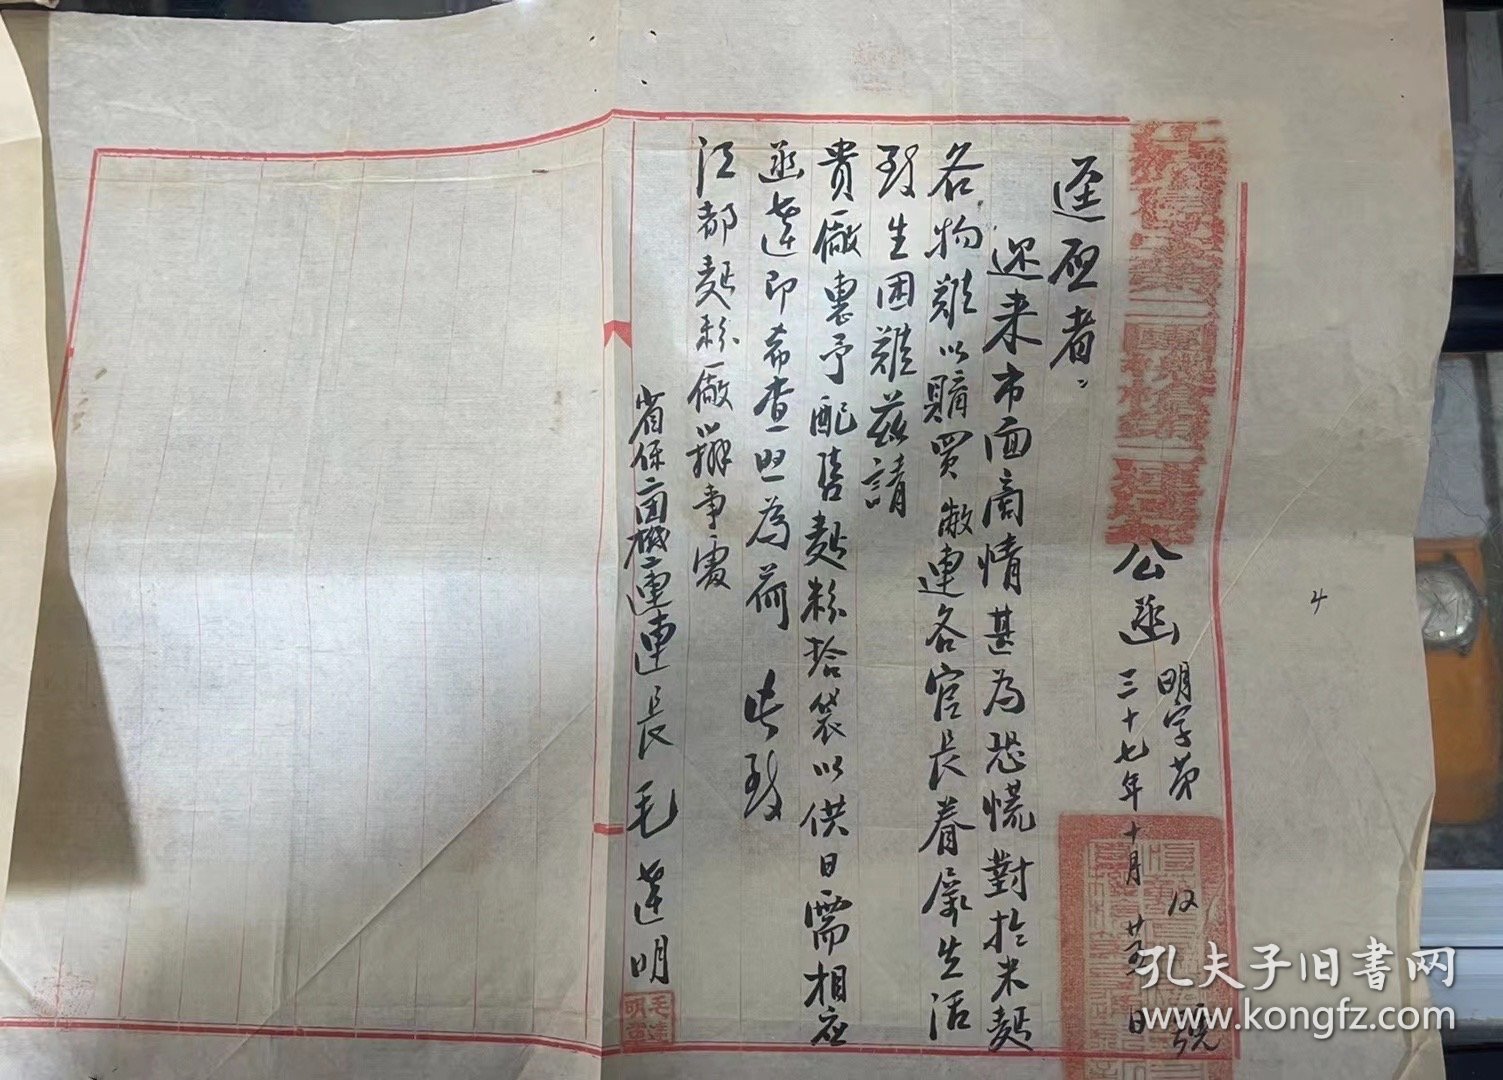 公函 明字第12號
三十七年十月廿五日
逕啟者：
邇来市面商情甚為恐慌對於米麵
各物難以購買敝連各官長眷屬生活
致生困難茲請
貴廠惠予配售麵粉拾袋以供日需相应
函達即希查照為荷 此致
江都麵粉廠辦事處
省保二團機二連連長毛蓮明
4
孔夫子旧书网
www.kongfz.com